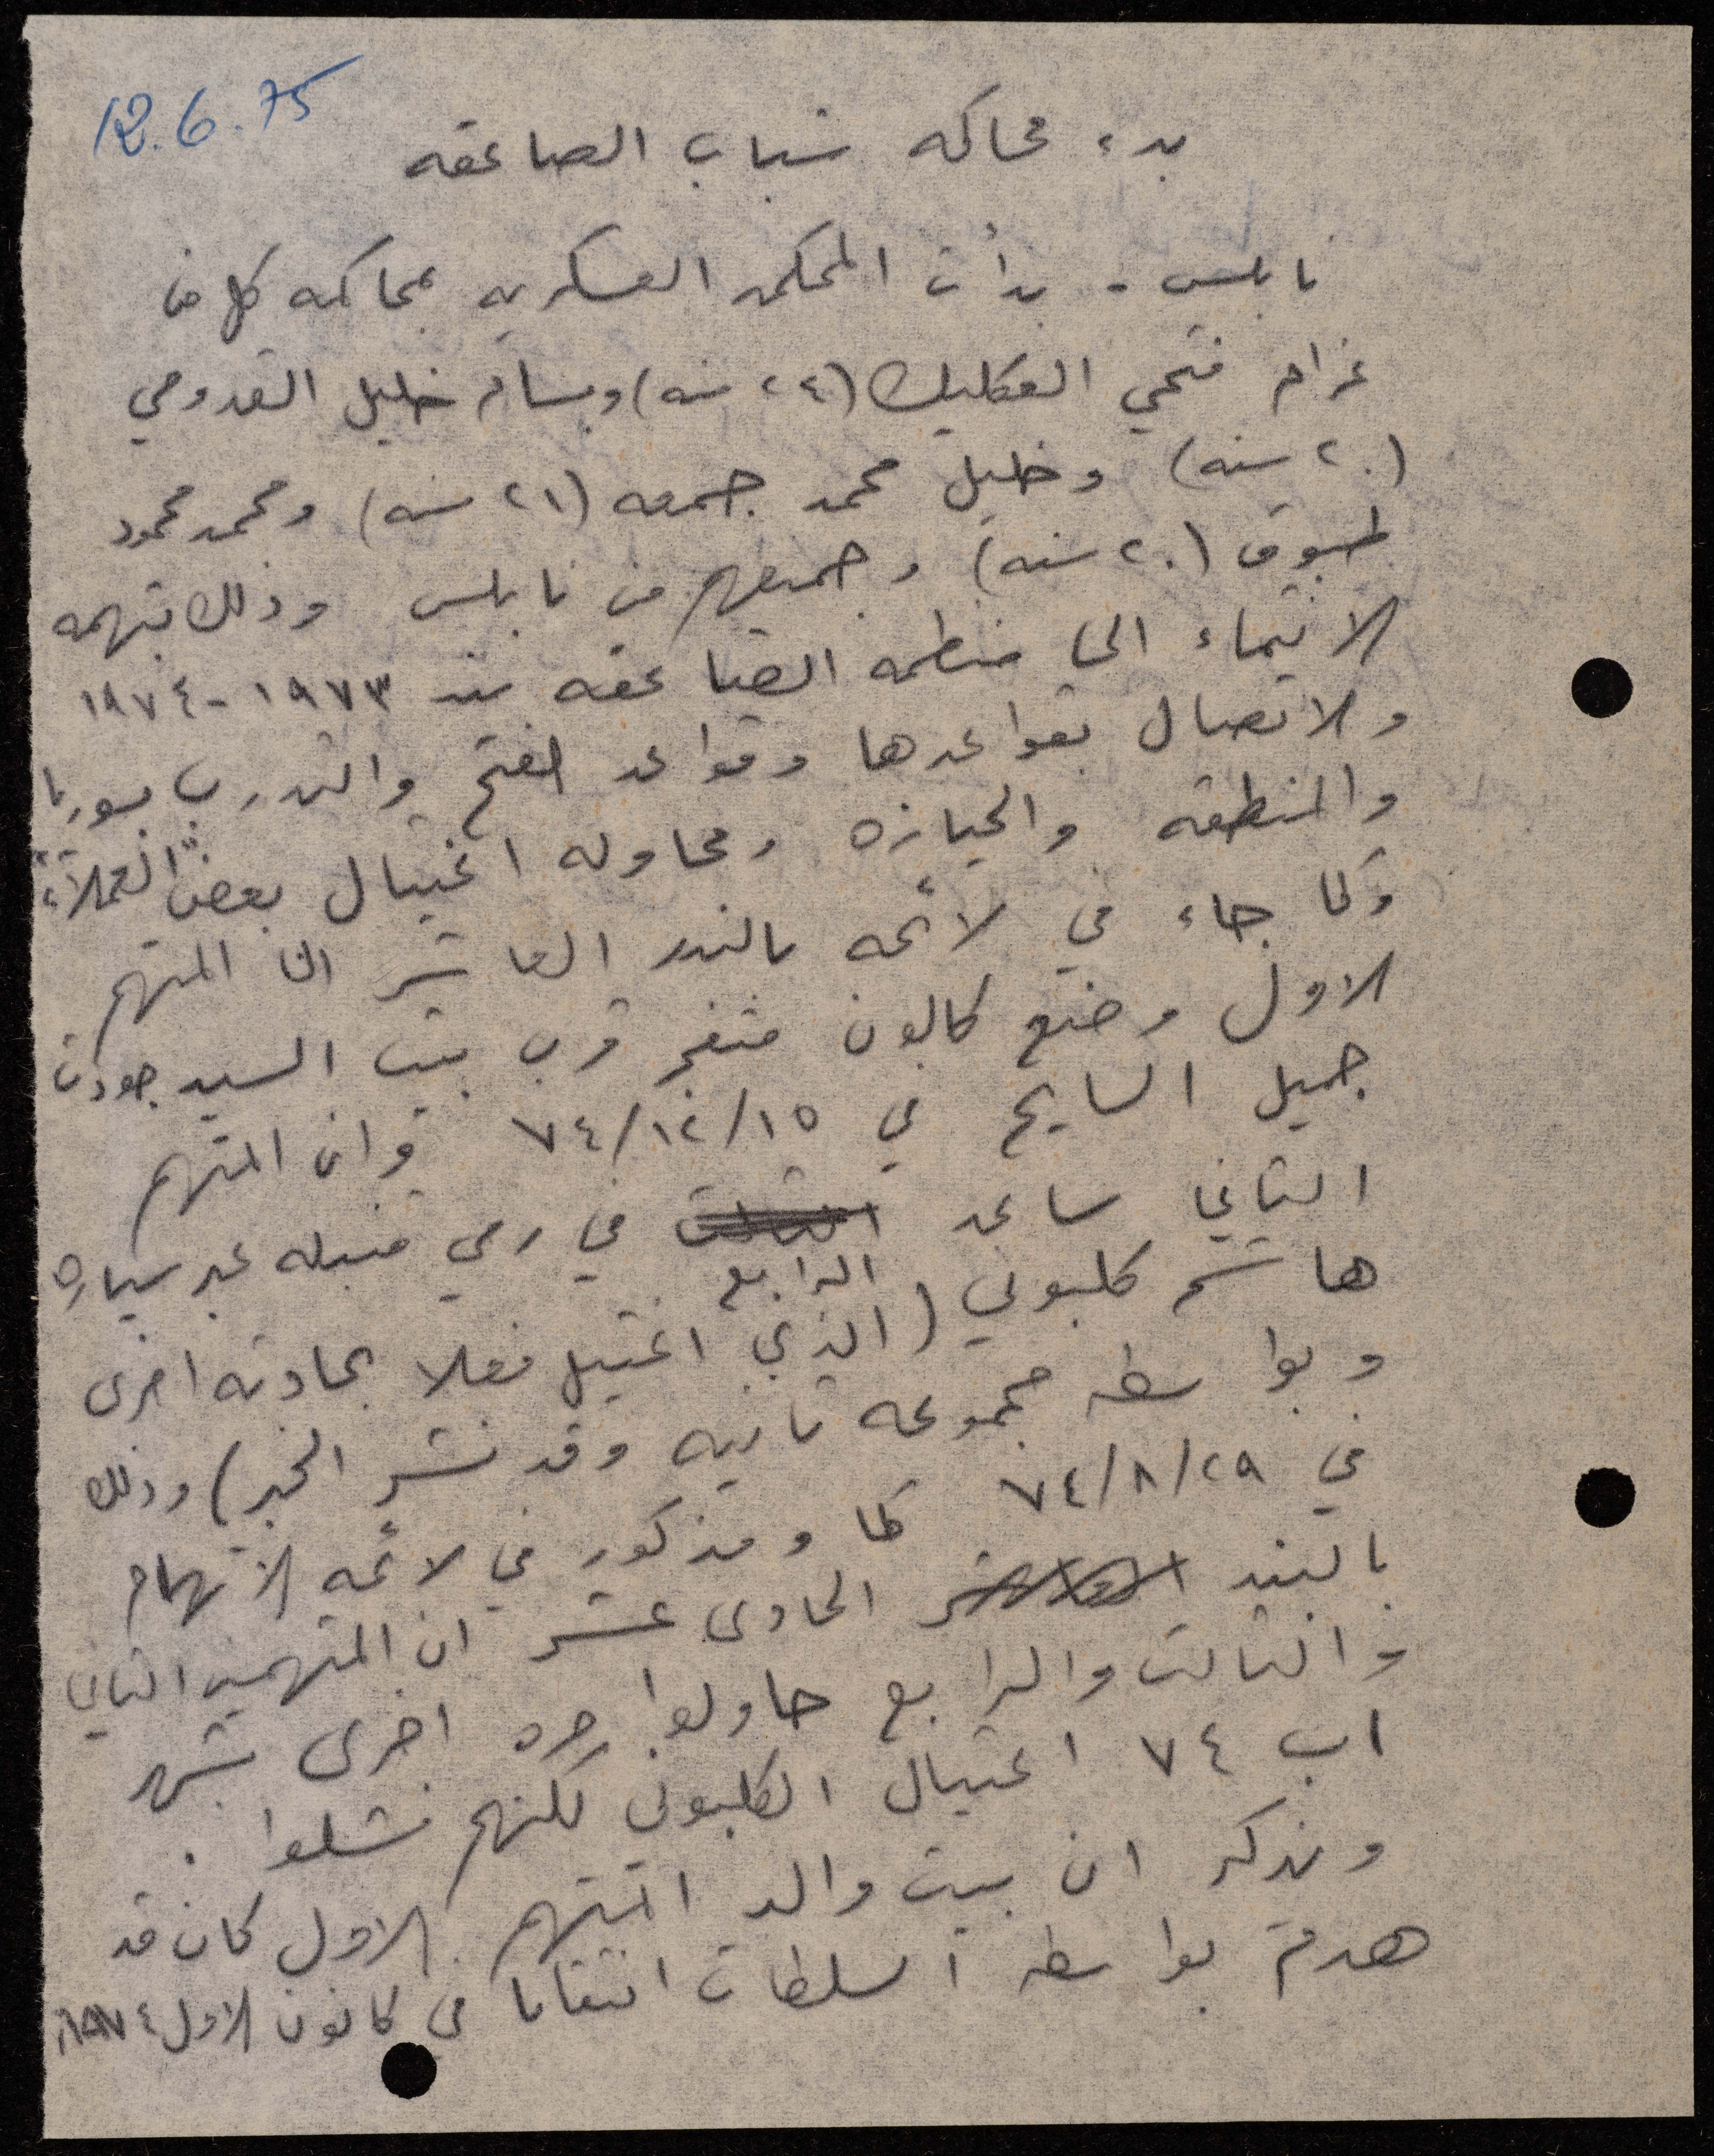 12.6.75
بدء محاكمه شباب الصاعقه
نابلس - بدأت المحكمه العسكريه بمحاكمه كل من
غرام فتحي العكليك (٢٤ سنه) وبسام خليل القدومي
(٢٠ سنه) وخليل محمد جمعه (٢١ سنه) ومحمد محمود
طبوق (٢٠ سنه) وجميعهم من نابلس وذلك بتهمه
الانتماء الى منظمه الصاعقه بند ١٩٧٣-١٩٧٤
والاتصال بقواعدها وقواعد لفتح والتدرب بسوريا
والمنطقه والحيازه ومحاوله اغتيال بعض "العملاء"
وكما جاء في لائحه بالبند العاشر ان المتهم
الاول وضع كالون متفجر قرب بيت السيد جودت
جميل السايح في ٧٤/١٢/١٥ وان المتهم
الثاني ساعد الرابع في رمي قنبله عبر سياره
هاشم كلبوني (الذي اغتيل فعلا بحادثه اخرى
وبواسطه مجموعه ثانيه وقد نشر الخبر) وذلك
في ٧٤/٨/٢٩ كما ومذكور في لائحه الاتهام
بالبند الحادى عشر ان المتهمين الثاني
والثالث والرابع حاولوا مره اخرى بشهر
اب ٧٤ اغتيال الكلبوني لكنهم فشلوا .
ونذكر ان بيت والد المتهم الاول كان قد
هدم بواسطه السلطات انتقاما في كانون الاول ١٩٧٤